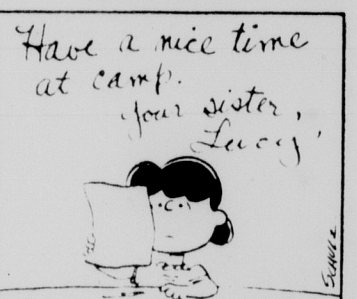 Have a nice time
at camp.
your sister,
Lucy
SCHULZ